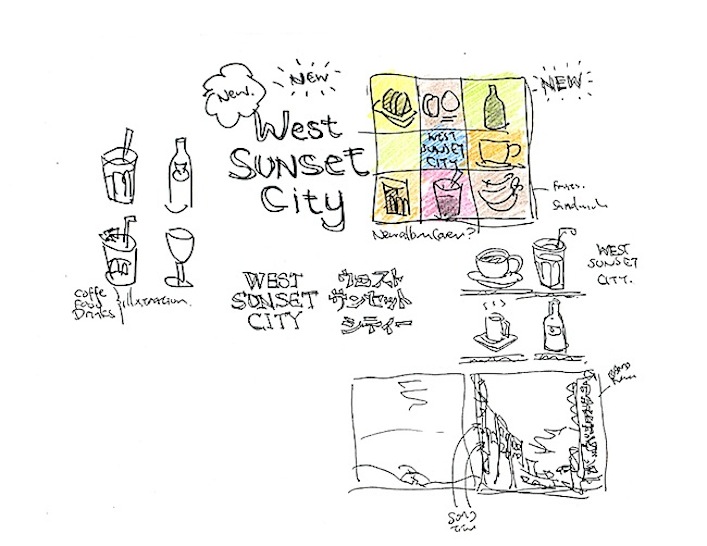 New.
NEW
West
SUNSET
City
WEST
SUNSET
CITY
NEW
New album cover?
fruits.
Sandwich
Coffe
Food
Drinks
illustration.
WEST
SUNSET
CITY
ウェスト
サンセット
シティー
WEST
SUNSET
CITY.
Song